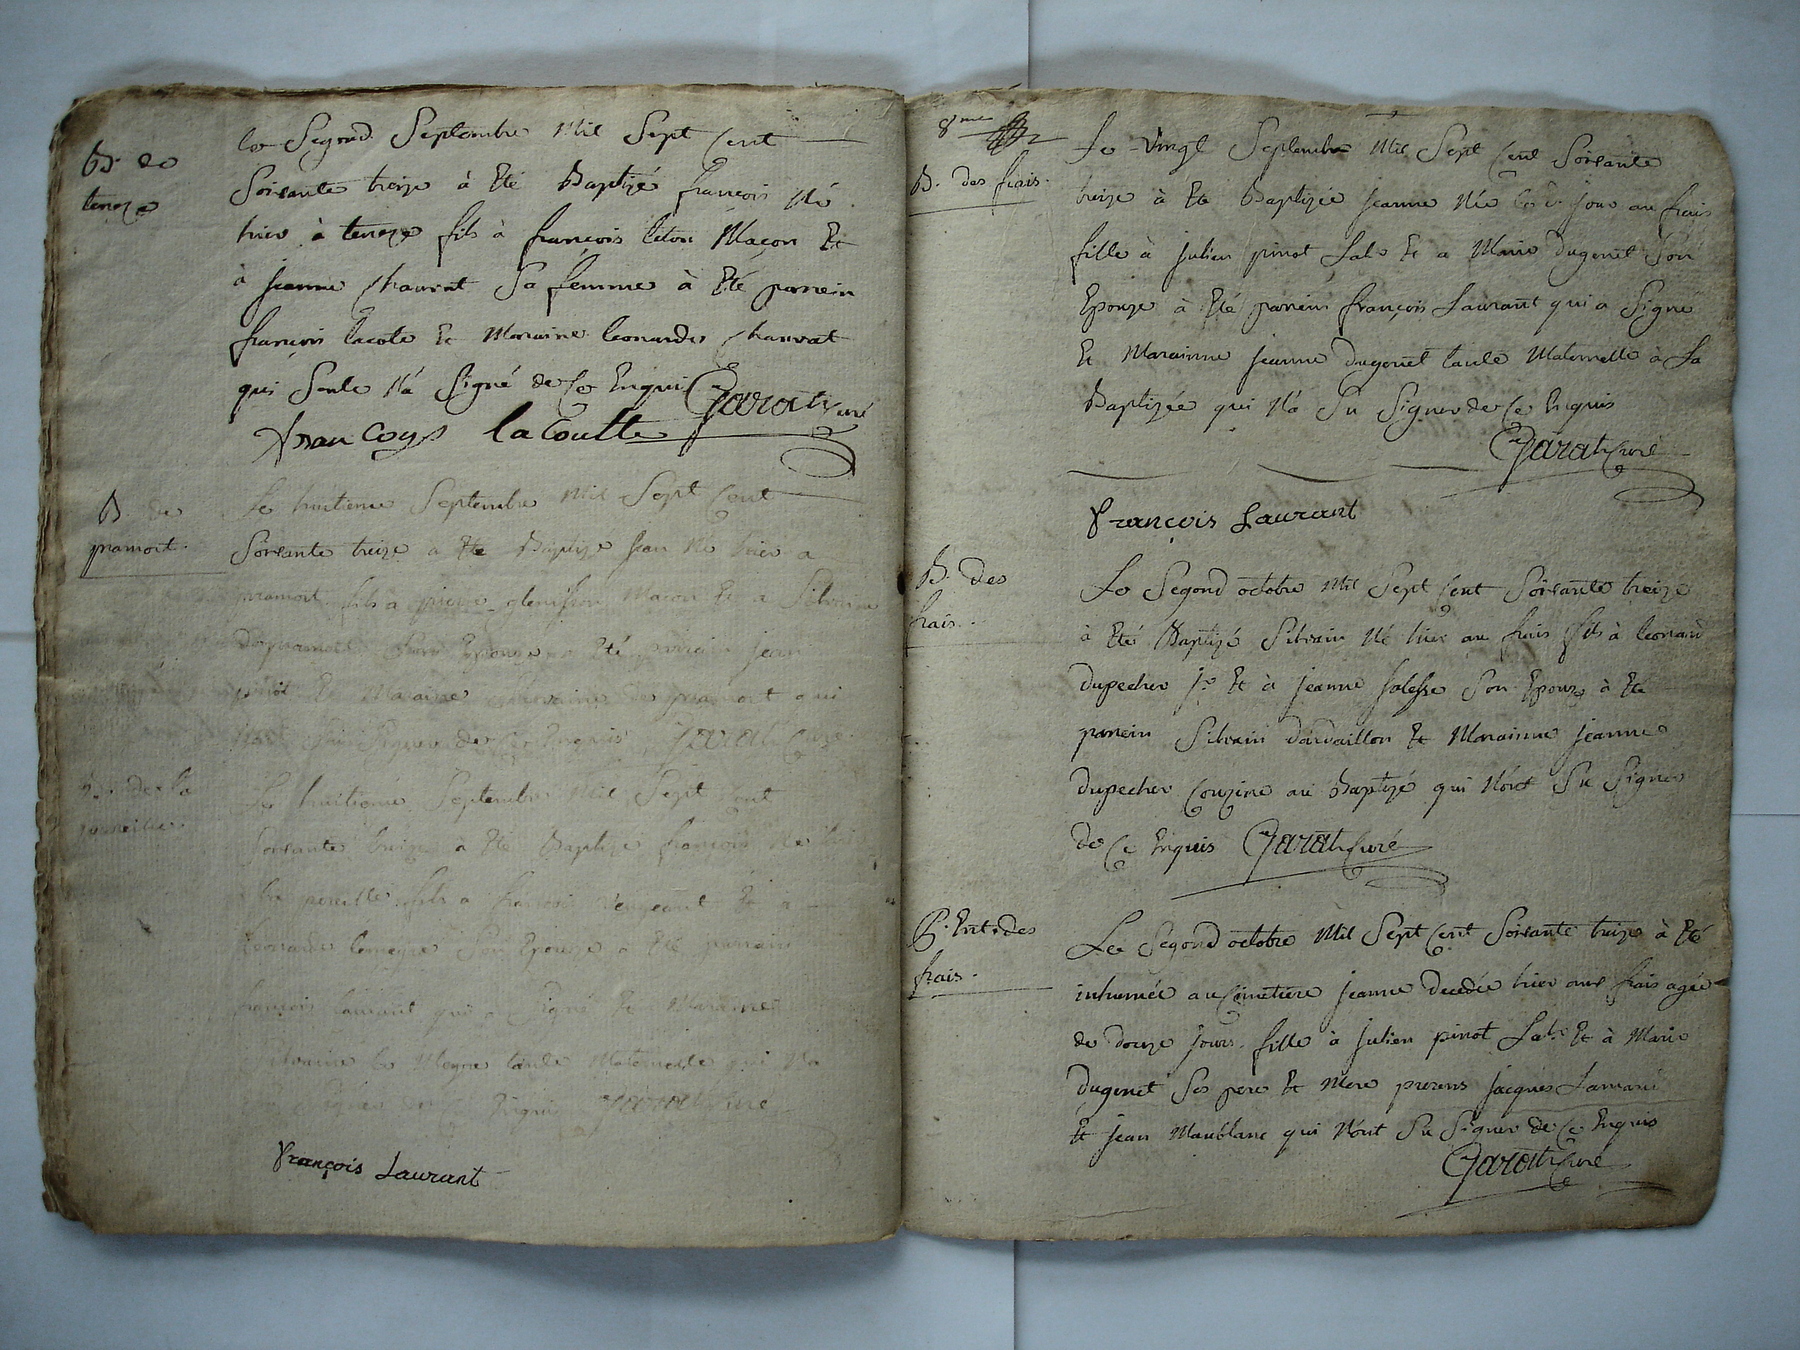 B. de
teneze
le Segond Septembre Mil Sept Cent
Soixante treize à Eté Baptizé françois Né
hier à teneze fils à françois leton Maçon Et
à jeanne chauvat Sa femme à Eté parrein
françois lacote Et Maraine leonarde chauvat
qui Seule N'a Signé de Ce Enquis Garat Curé
francoys lacoutte
B. de
pramont.
Le huitieme Septembre Mil Sept Cent
Soixante treize a Eté Baptizé jean Né hier a
pramont fils a pierre Maçon Et a Silvaine
depramont Son Epouze a Eté parrein jean
pinot Et Maraine Silvaine de pramont qui
Signer de Ce Enquis Garat Curé
B. de la
Le huitieme Septembre Mil Sept Cent
Soixante treize à Eté Baptizé françois Né hier
a la fils a françois Et a
leonarde Son Epouze a Eté parrein
françois laurant qui a Signé Et Maraine
tante Maternelle qui N'a
Signer de Enquis Garat Curé
François Laurant
8me
B. des frais.
Le Vingt Septembre Mil Sept Cent Soixante
treize à Eté Baptizée jeanne Née le d. jour au frais
fille à julien pinot Lab. Et a Marie dugenet Son
Epouze à Eté parrein françois Laurant qui a Signé
Et Marainne jeanne dugenet tante Maternelle à La
Baptizée qui N'a Su Signer de Ce Enquis
Garat Curé
François Laurant
B. des
frais.
Le Segond octobre Mil Sept Cent Soixante treize
à Eté Baptizé Silvain Né hier au frais fils à leonard
dupecher je Et à jeanne Son Epouze à Eté
parrein Silvain darvaillon Et Marainne jeanne
dupecher Couzine au Baptizé qui N'ont Su Signer
de Ce Enquis Garat Curé
P. Ent. des
frais.
Le Segond octobre Mil Sept Cent Soixante treize à Eté
inhumée au Cimetiere jeanne decedée hier aux frais agée
de douze jours fille à julien pinot Lab. Et à Marie
dugenet Ses pere Et Mere prezens jacques Lamard
Et jean Maublanc qui N'ont Su Signer de Ce Enquis
Garat Curé